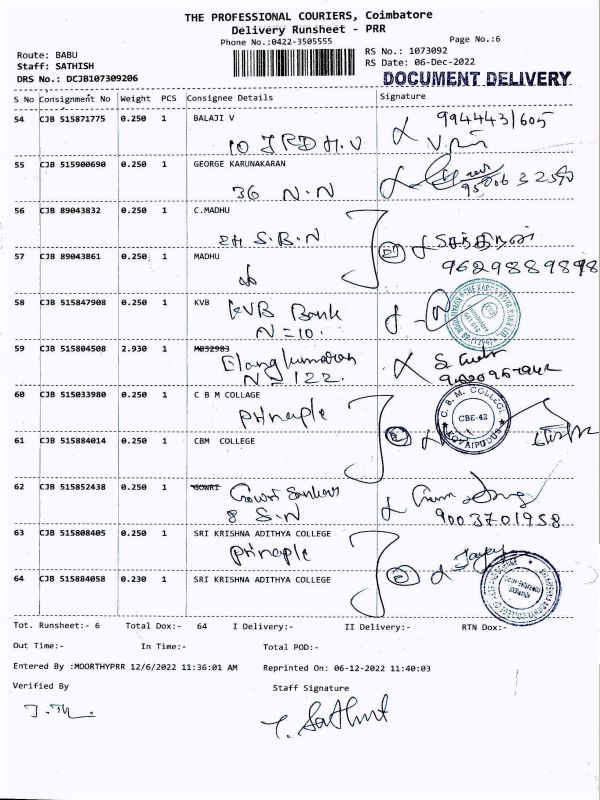 THE PROFESSIONAL COURIERS, Coimbatore
Delivery Runsheet - PRR
Phone No.:0422-3505555
Page No.:6
Route: BABU
RS No.: 1073092
Staff: SATHISH
RS Date: 06-Dec-2022
DRS No.: DCJB107309206
DOCUMENT DELIVERY
S No Consignment No Weight PCS Consignee Details Signature
54 CJB 515871775 0.250 1 BALAJI V
9944431605
55 CJB 515900690 0.250 1 GEORGE KARUNAKARAN
36 N.N
56 CJB 89043832 0.250 1 C.MADHU
S.B.N
57 CJB 89043861 0.250 1 MADHU
9629889898
58 CJB 515847908 0.250 1 KVB
KVB Bank
N=10.
59 CJB 515804508 2.930 1 M032983
Elangkumaran
N=122.
60 CJB 515033980 0.250 1 C B M COLLAGE
Prinaple
C. B. M. COLLEGE
CBE-42
KOVAIPUDUR
61 CJB 515884014 0.250 1 CBM COLLEGE
62 CJB 515852438 0.250 1 GOWRI
Gowri Sankar
8 S.N
9003701958
63 CJB 515808405 0.250 1 SRI KRISHNA ADITHYA COLLEGE
Prinaple
64 CJB 515884058 0.230 1 SRI KRISHNA ADITHYA COLLEGE
Tot. Runsheet:- 6 Total Dox:- 64 I Delivery:- II Delivery:- RTN Dox:-
Out Time:- In Time:- Total POD:-
Entered By :MOORTHYPRR 12/6/2022 11:36:01 AM Reprinted On: 06-12-2022 11:40:03
Verified By Staff Signature